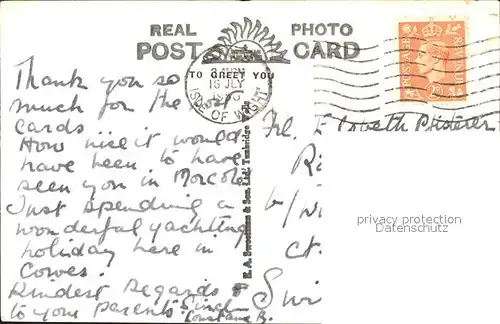 REAL PHOTO
POST CARD
TO GREET YOU
16 JLY
ISLE OF WIGHT
POSTAGE REVENUE
Thank you so
much for the
cards
How nice it would
have been to have
seen you in Morcote
Just spending a
wonderful yachting
holiday here in
Cowes.
Kindest Regards &
to your parents
Constance B.
E. A. Sweetman & Son, Ltd., Tunbridge
Frl. Elsbeth Pfisterer
Ri
b/Wi
Ct.
Swi
privacy protection